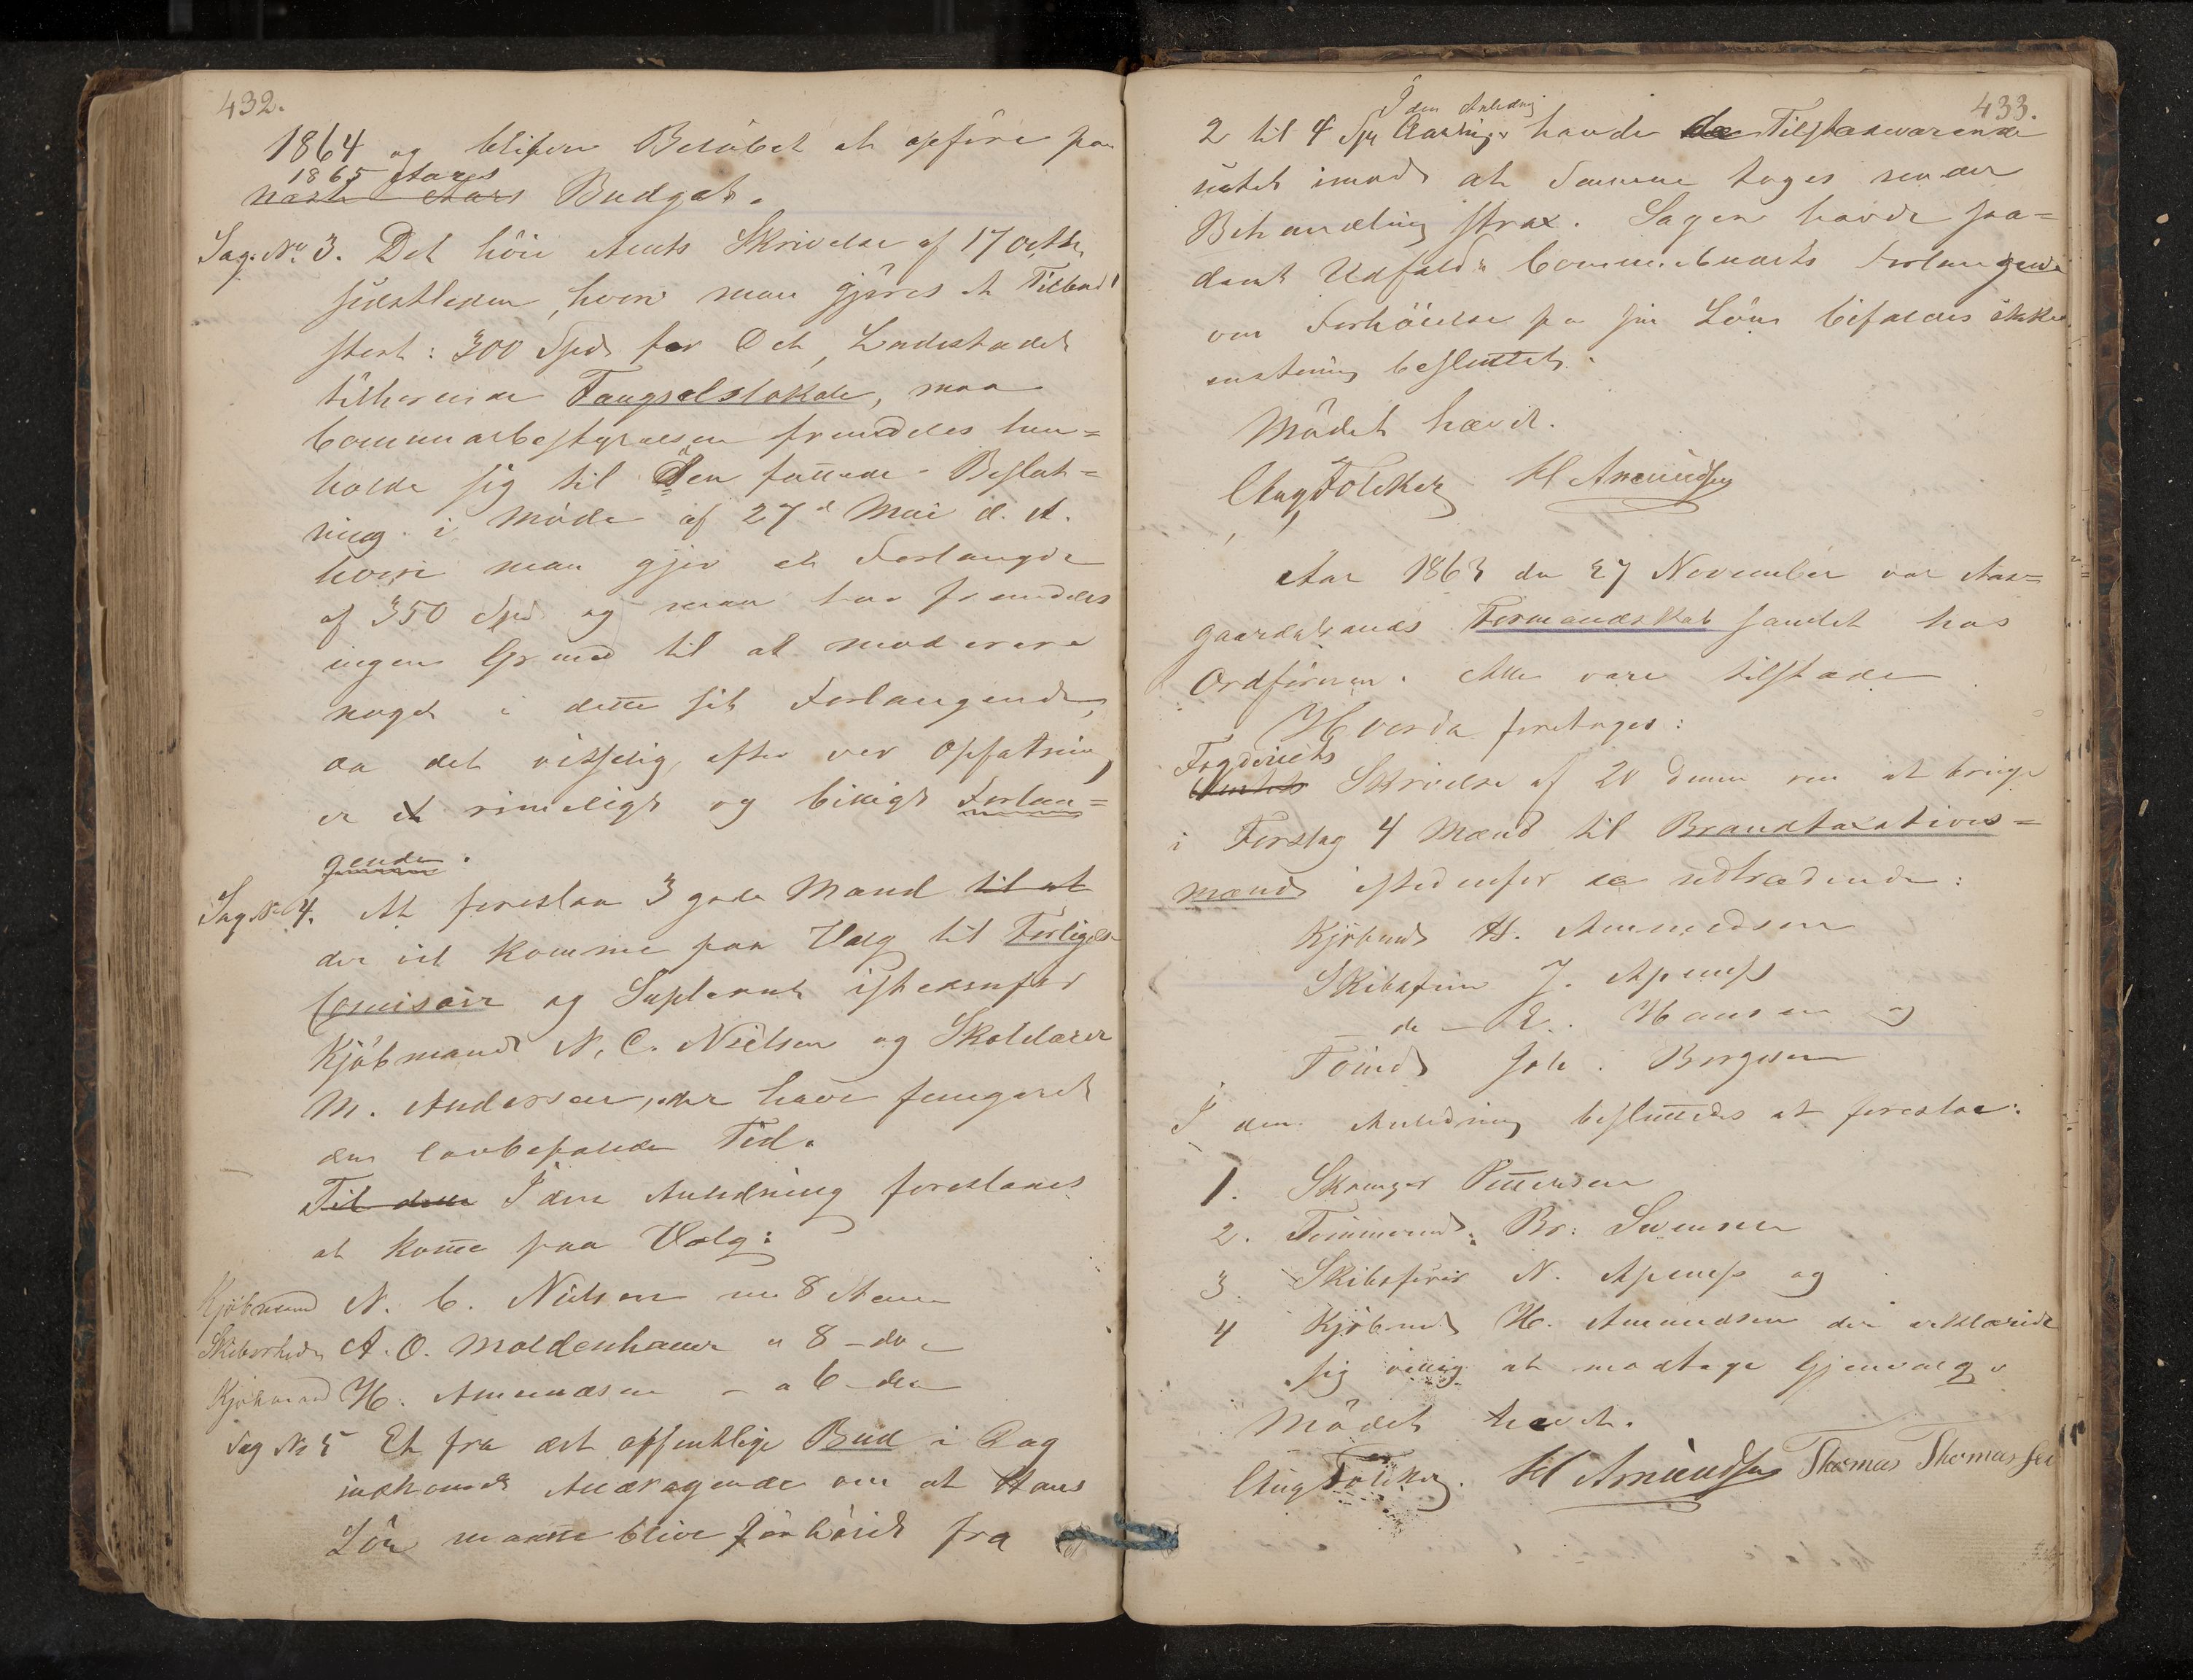 432.
1864 og bliver Beløbet at opføre paa
1865 Aars
næste Aars Budget.
Sag. No 3. Det höie Amts Skrivelse af 17 octbr
sidstleden, hvori man gjøres et Tilbud
stort: 300 Spd. for Det, Ladestedet
tilhørende Fangselslokale, maa
Communebestyrelsen fremdeles hen=
holde sig til den fattede Beslut=
ning i Møde af 27d Mai d. A.
hvori man gjør et Forlangde
af 350 Spd og man har fremdeles
ingen Grund til at moderere
noget i dette sit Forlangende,
da det visselig, efter vor Opfatning,
er et rimeligt og billigt Forlan=
gende.
Sag. No 4. At foreslaa 3 gode Mænd til at
der vil komme paa Valg til Forligels
Comisair og Suplerant istedenfor
Kjöbmand N. C. Nielsen og Skolelærer
M. Andersen, der have fungeret
den lovbefalede Tid.
Til dette I den Anledning foreslaaes
at komme paa Valg:
Kjöbmand N. C. Nielsen m 8 Stemr
Skibsrheder A. O. Moldenhauer " 8 - do
Kjøbmand H. Amundsen - " 6 - do
Sag No 5 Et fra det offentlige Bud i Dag
indkommet Andragende om at Hans
Lön maatte blive forhöiet fra
433.
I den Anledng
2 til 4 Spd Aarling. havde de Tilstedeværende
intet imod at Samme toges under
Behandling strax. Sagen havde saa=
dant Udfald: Communebudets Forlangende
om Forhöielse paa sin Lön bifaldes ikke
enstemig besluttet.
Mödet hævet.
Aug Fölcker H Amundsen
Aar 1863 den 27 November var Aas=
gaardstrands Formandskab samlet hos
Ordføreren. Alle vare tilstede
Hvorda foretoges:
Fogderiets
Amtets Skrivelse af 20 dennes om at bringe
i Forslag 4 Mænd til Brandtaxations=
mænd istedenfor de udtrædende:
Kjöbmd H. Amundsen
Skibsfører J. Apenæs
- do - E. Hansen og
Tömd Joh. Borgesen
I den Anledning besluttedes at foreslaae:
1. Pettersen
2. Tömmermd. Br: Svensen
3. Skibsfører N. Apenæs og
4 Kjöbmd H. Amundsen der erklærede
sig villig at modtage Gjenvalg.
Mödet hævet.
Aug Fölcker. H Amundsen Thomas Thomassen